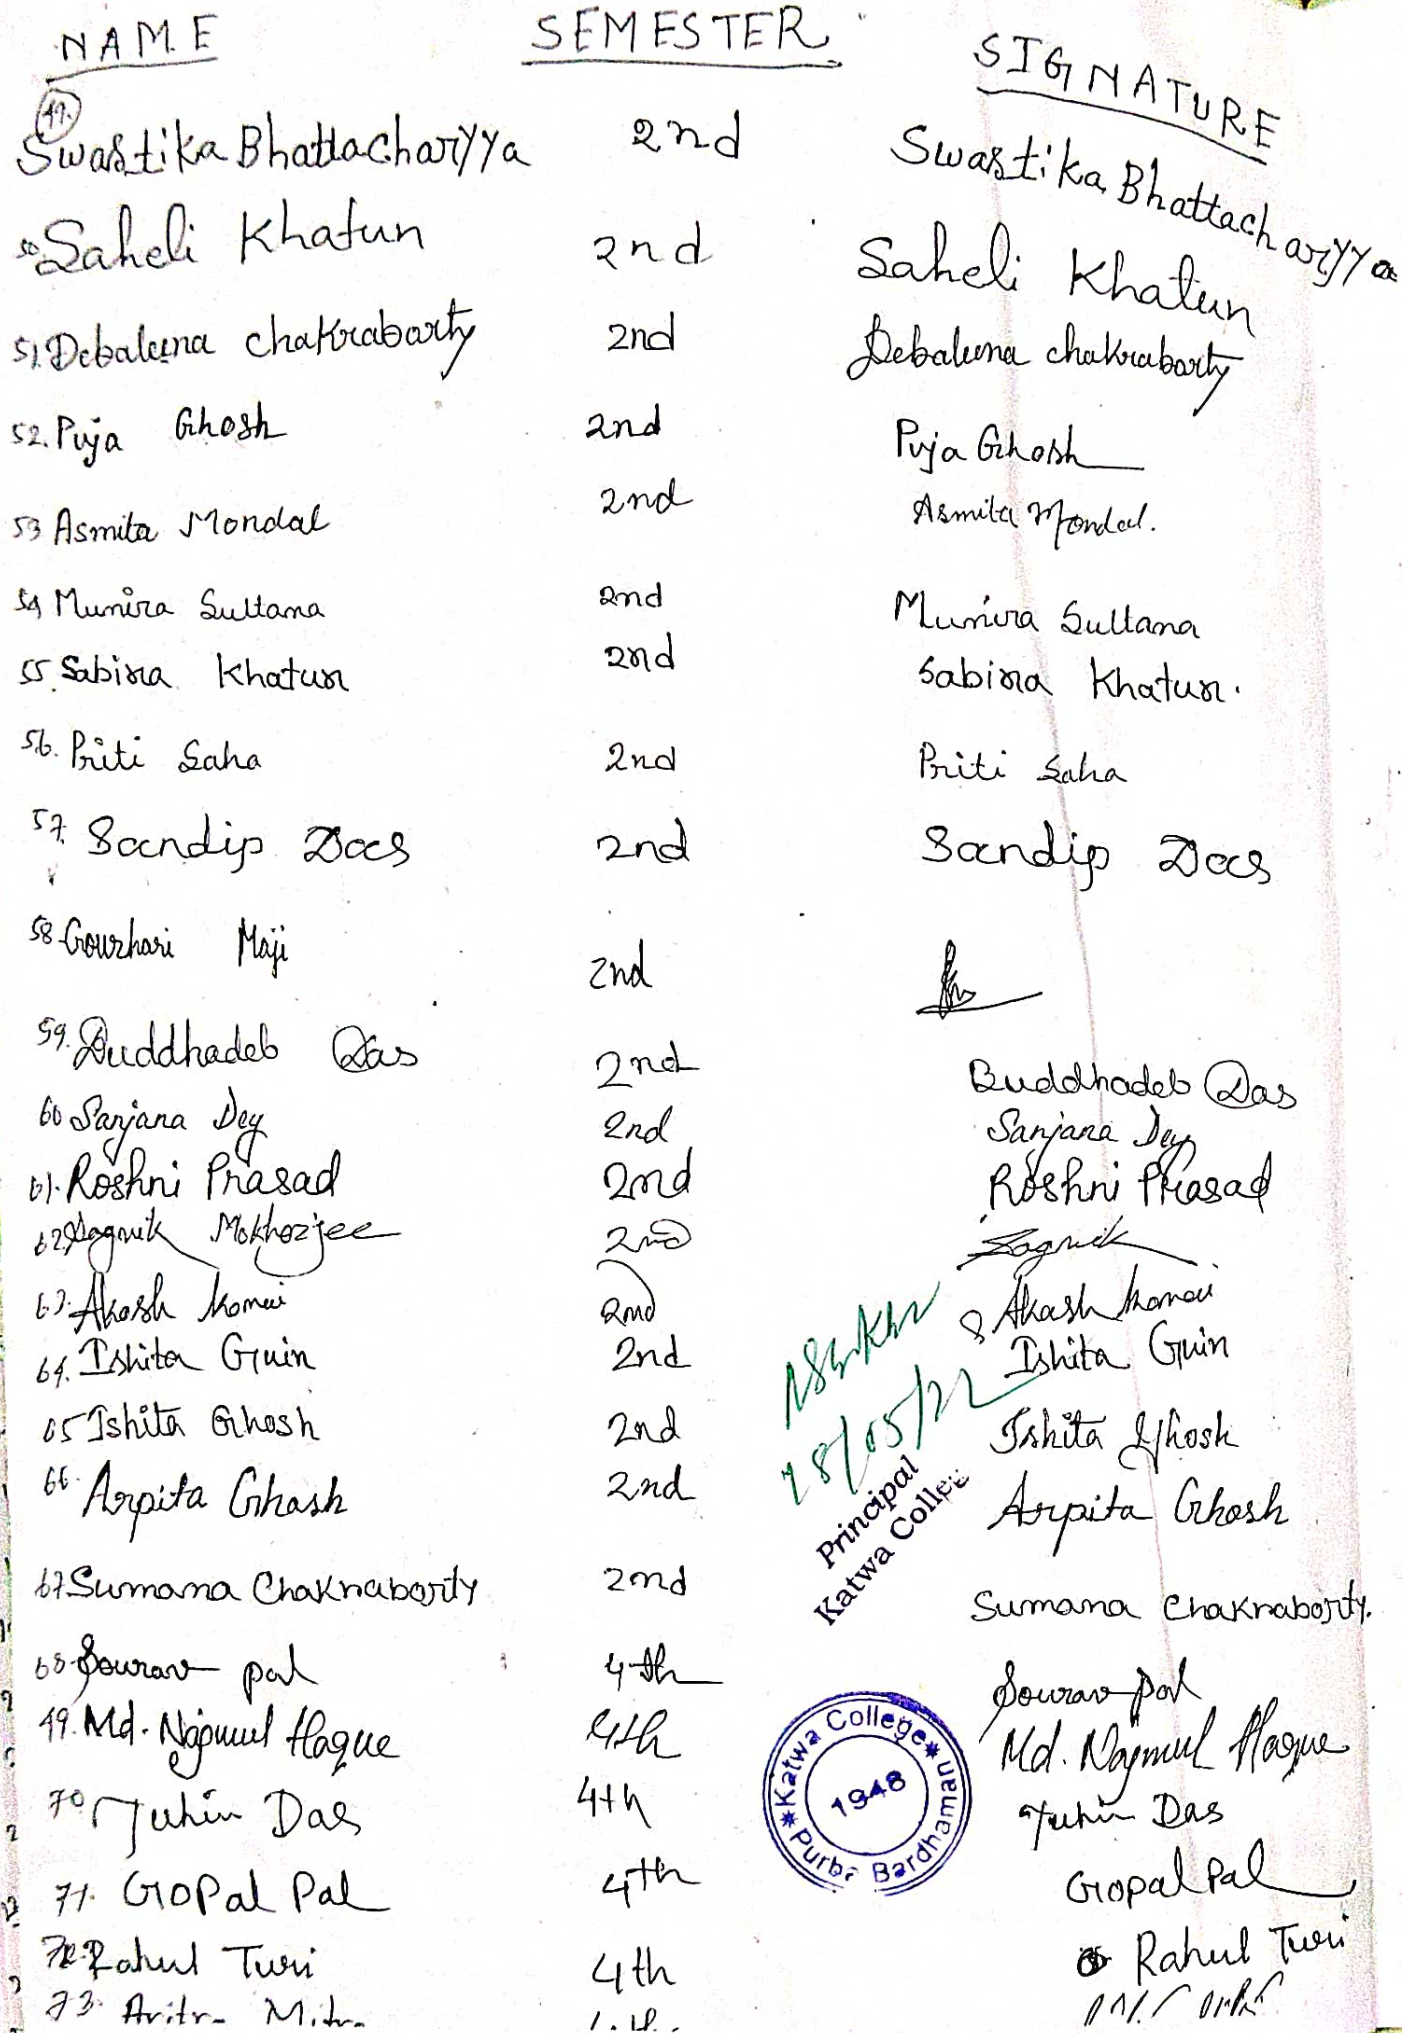 NAME SEMESTER SIGNATURE
49. Swastika Bhattacharyya 2nd Swastika Bhattacharyya
50 Saheli Khatun 2nd Saheli Khatun
51. Debaleena Chakrabarty 2nd Debaleena Chakrabarty
52. Puja Ghosh 2nd Puja Ghosh
53 Asmita Mondal 2nd Asmita Mondal.
54 Munira Sultana 2nd Munira Sultana
55. Sabina Khatun 2nd Sabina Khatun.
56. Priti Saha 2nd Priti Saha
57. Sandip Das 2nd Sandip Das
58. Gourhari Maji 2nd
59. Buddhadeb Das 2nd Buddhadeb Das
60 Sanjana Dey 2nd Sanjana Dey
61. Roshni Prasad 2nd Roshni Prasad
62. Sagnik Mokherjee 2nd Sagnik
63. Akash 2nd Akash
64. Ishita Guin 2nd Ishita Guin
65 Ishita Ghosh 2nd Ishita Ghosh
66. Arpita Ghosh 2nd Arpita Ghosh
28/05/22
Principal
Katwa College
67 Sumana Chakraborty 2nd Sumana Chakraborty.
68 Sourav pal 4th Sourav pal
49. Md. Najmul Haque 4th Md. Najmul Haque
70 Tuhin Das 4th Tuhin Das
Katwa College
1948
Purba Bardhaman
71. Gopal Pal 4th Gopal Pal
72. Rahul Turi 4th Rahul Turi
73. Aritra Mitra